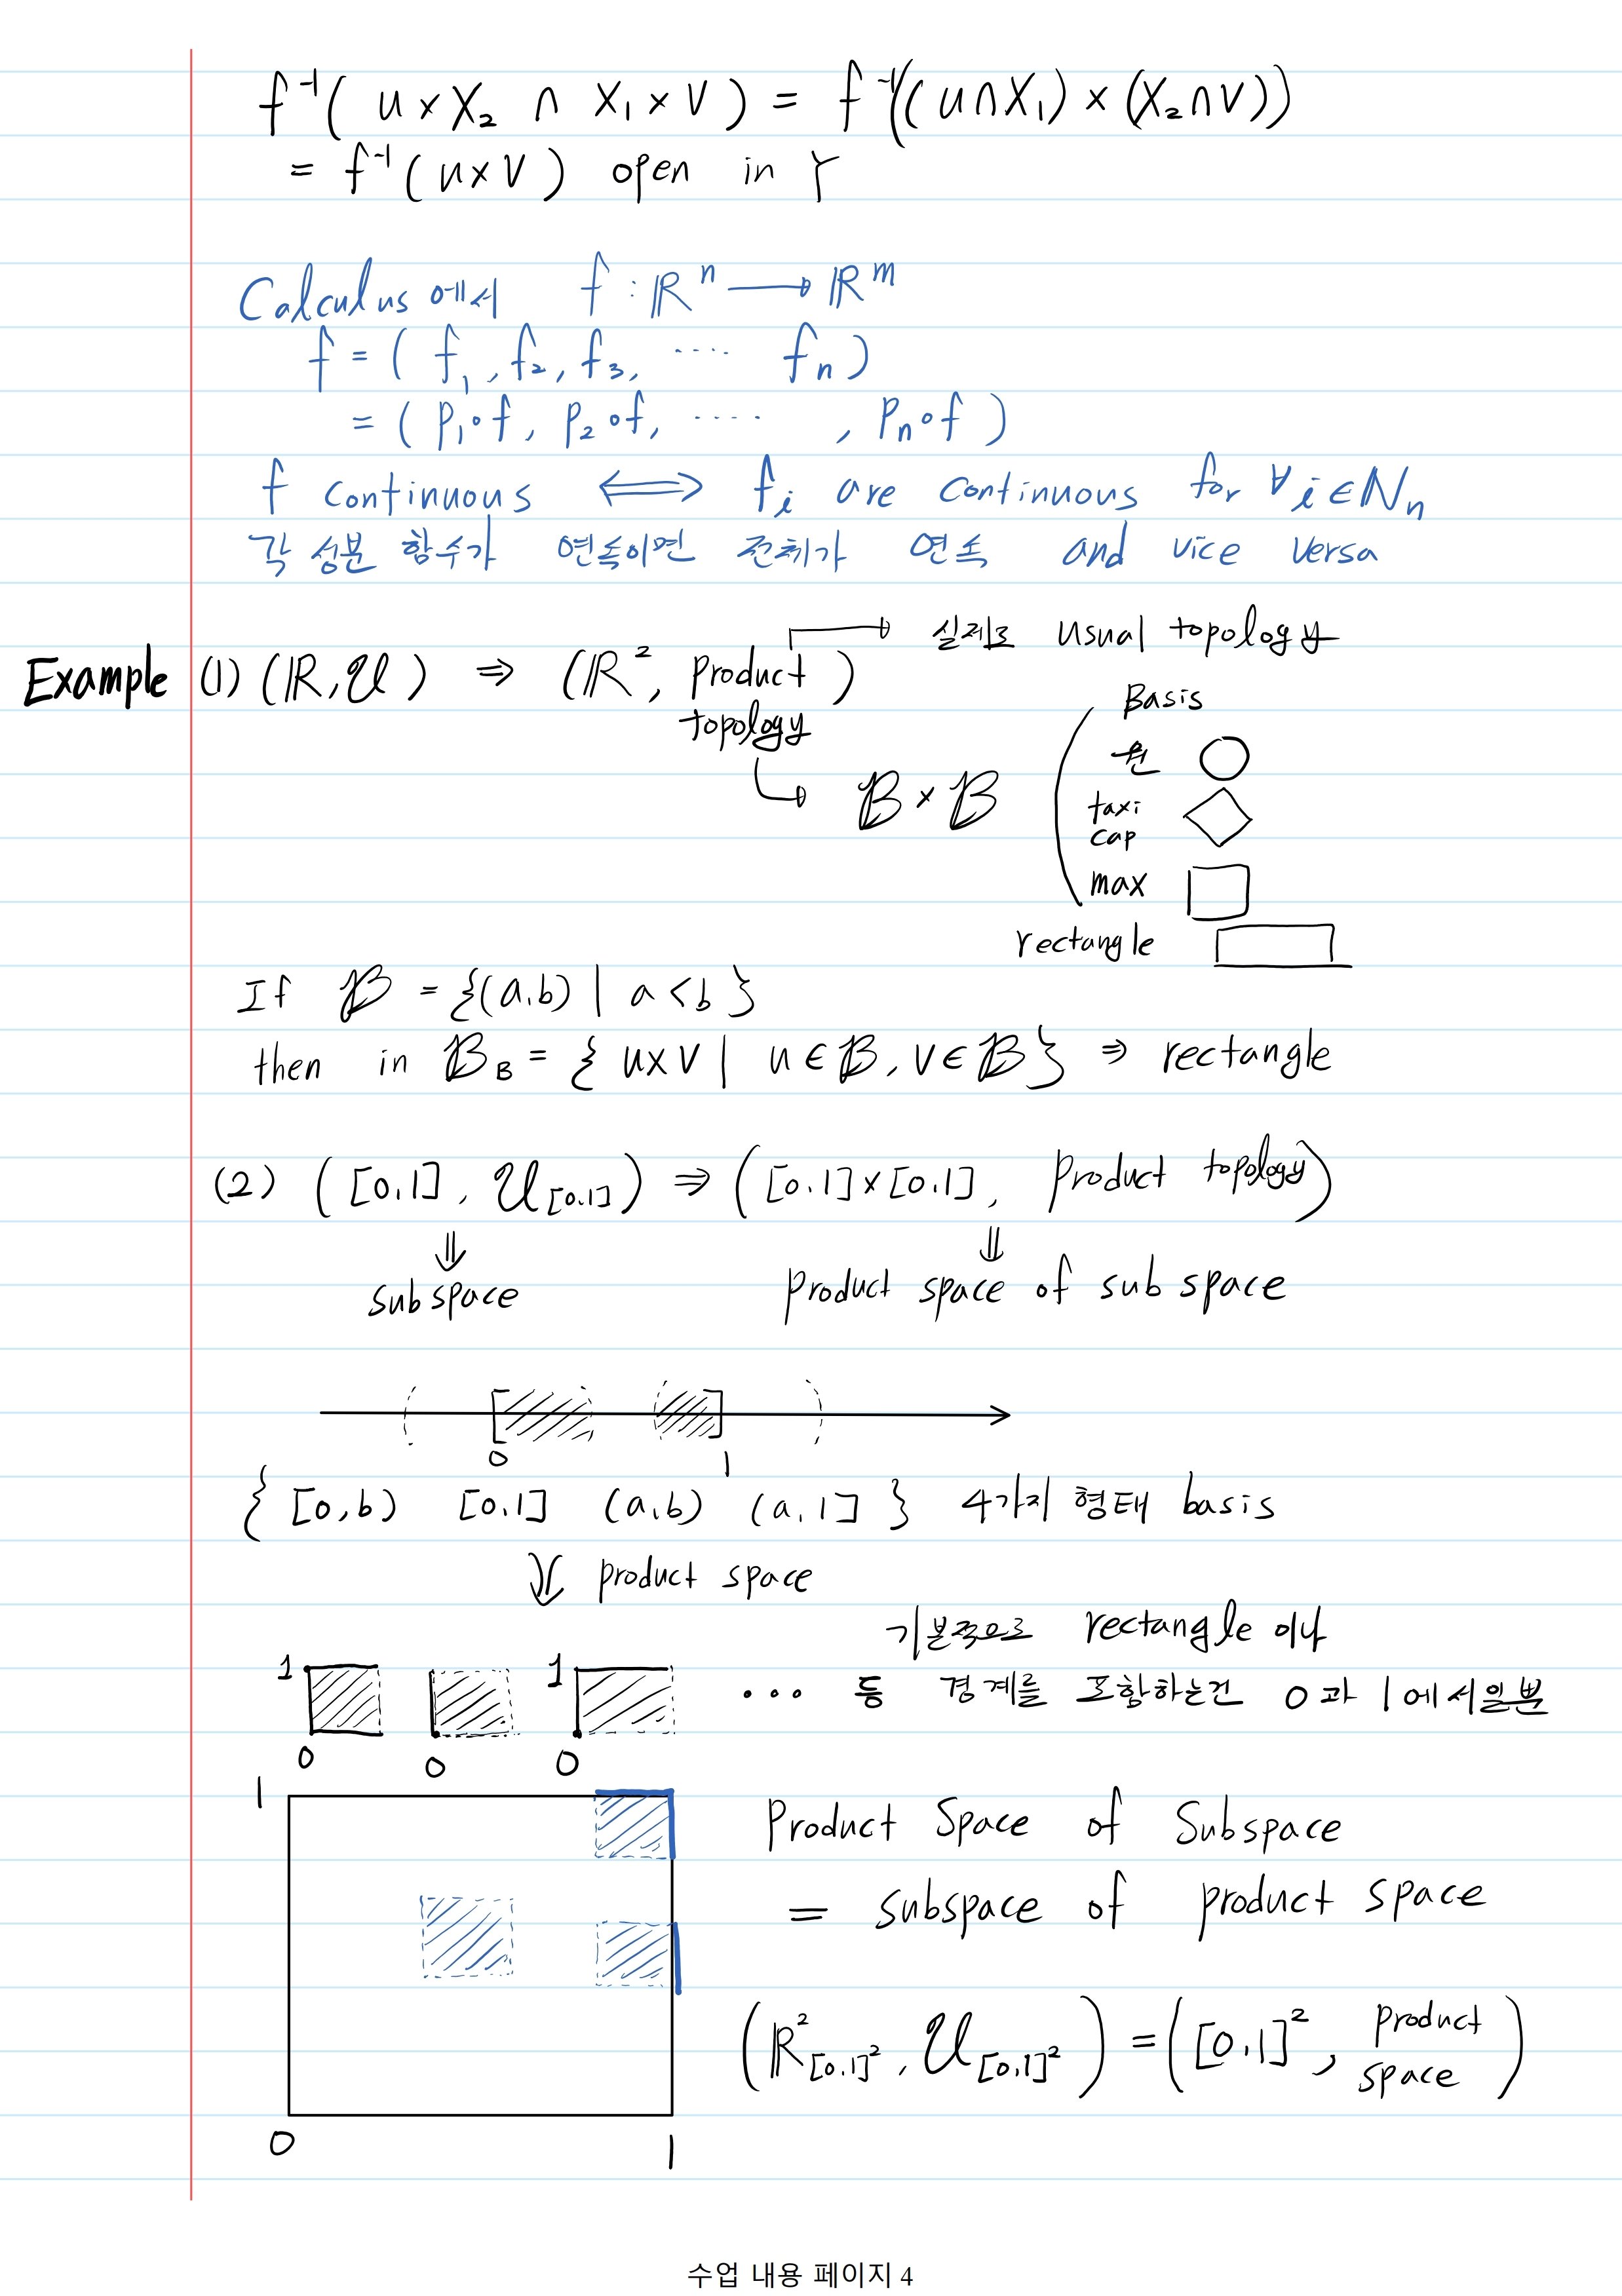 f⁻¹( U × X₂ ∩ X₁ × V ) = f⁻¹((U∩X₁) × (X₂∩V))
= f⁻¹(U×V) open in Y
Calculus 에서 f : ℝⁿ → ℝᵐ
f = ( f₁, f₂, f₃, ···· fₙ )
= ( P₁∘f, P₂∘f, ····· , Pₙ∘f )
f continuous ⟺ fᵢ are continuous for ∀i∈ℕₙ
각 성분 함수가 연속이면 전체가 연속 and vice versa
→ 실제로 usual topology
Example (1) (ℝ, 𝒰) ⇒ (ℝ², Product topology)
Basis
원
↳ ℬ × ℬ
taxi cap
max
rectangle
If ℬ = {(a,b) | a < b }
then in ℬ_B = { U×V | U ∈ ℬ, V ∈ ℬ } ⇒ rectangle
(2) ([0,1], 𝒰_[0,1]) ⇒ ([0,1]×[0,1], Product topology)
⇓ ⇓
Subspace Product space of sub space
0 1
{ [0,b) [0,1] (a,b) (a,1] } 4가지 형태 basis
⇓ product space
기본적으로 rectangle 이나
1 1 ··· 등 경계를 포함하는건 0 과 1에서일뿐
0 0 0
1
Product Space of Subspace
= subspace of product space
(ℝ²_[0,1]², 𝒰_[0,1]²) = ([0,1]², product space)
0 1
수업 내용 페이지 4